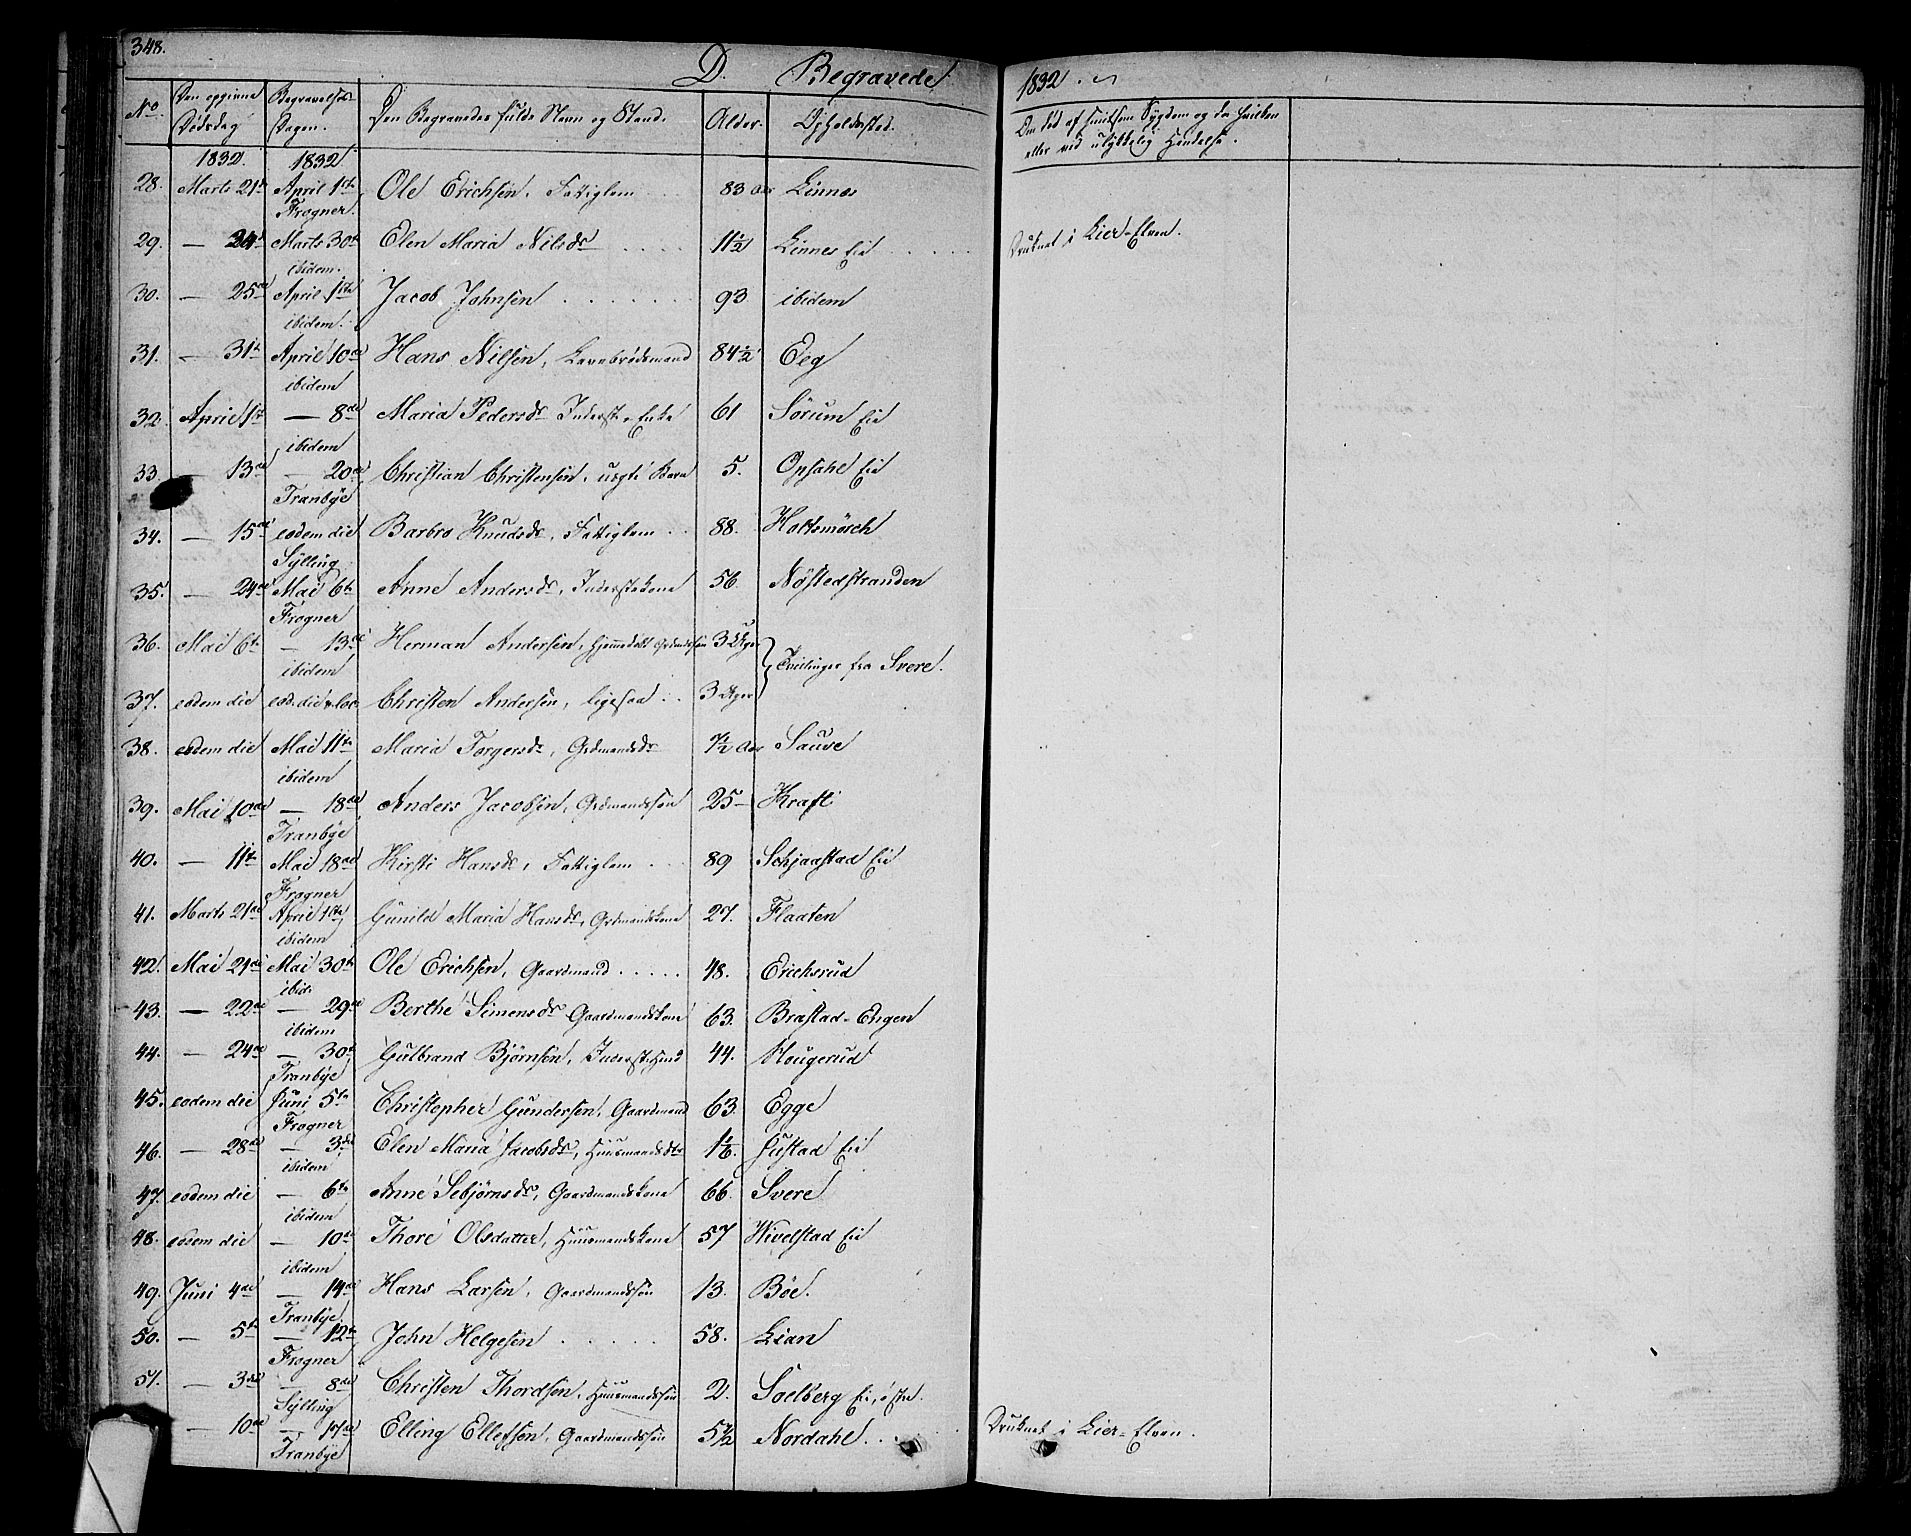 348.
D. Begravede
1832.
No. Den opgivne Dødsdag Begravelses Dagen. Den Begravedes fulde Navn og Stand. Alder. Opholdssted.
Om død af Sygdom og da hvilken
eller ved ulykkelig Hændelse.
1832. 1832
28. Marts 21de April 1ste Ole Erichsen, Fattiglem 83 Aar Linnes
Frogner.
29. — 24de Marts 30te Elen Maria Nilsdr 11½ Linnes Eie Druknet i Lier-Elven.
ibidem.
30. — 25de April 1ste Jacob Johnsen 93 ibidem
ibidem.
31. — 31te April 10de Hans Nilsen, Levebrødsmand 84½ Eeg
ibidem
32. April 1ste — 8de Maria Pedersdr Inderst-Enke 61 Sørum Eie
ibidem
33. — 13de — 20de Christian Christensen, uægte Barn 5. Opsahl Eie
Tranbye
34. — 15de eodem die Barbro Knudsdr, Fattiglem 88. Holtsmörch
Sylling
35. — 24de Mai 6te Anne Andersdr, Inderstekone 56 Nøstedstranden
Frogner
36. Mai 6te — 13de Herman Andersen, hjemmedøbt Grdmdssøn 3 Uger
ibidem
Tvillinger fra Svere.
37. eodem die eod. die & loc. Christen Andersen, ligesaa 3 Uger
38. eodem die Mai 11te Maria Torgersdr, Grdmandsdr 7½ Aar Sauve
ibidem
39. Mai 10de — 18de Anders Jacobsen, Grdmandssøn 25 — Kraft
Tranbye
40. — 11te Mai 18de Kirsti Hansdr, Fattiglem 89 Schjaastad Eie
Frogner
41. Marts 21de April 1ste Gunild Maria Hansdr, Grdmandskone 27. Flaaten
ibidem
42. Mai 21de Mai 30te Ole Erichsen, Gaardmand 48. Erichsrud
ibid.
43. — 22de — 29de Berthe Simensdr Gaardmandskone 63. Brastad-Engen
ibidem
44. — 24de — 30te Gulbrand Bjørnsen, Inderst 44. Hougerud
Tranbye
45. eodem die Juni 5te Christopher Gundersen, Gaardmand 63. Egge
Frogner
46. — 28de — 3die Elen Maria Jacobsdr, Huusmandsdtr Gustad Eie
ibidem
47. eodem die — 6te Anne Sebjørnsdr, Gaardmandskone 66. Svere
ibidem
48. eodem die — 10de Thore Olsdatter, Huusmandskone 57 Wivelstad Eie
ibidem
49. Juni 4de — 14de Hans Larsen, Gaardmandssøn 13. Böe.
Tranbye
50. — 5te — 12te John Helgesen 58. Lian
Frogner
51. — 3die — 8de Christen Thordsen, Huusmandssøn 2. Soelberg Eie, østre.
Sylling
— 10de — 17de Elling Ellefsen, Gaardmandssøn 5½ Nordahl Druknet i Lier-Elven.
Tranbye